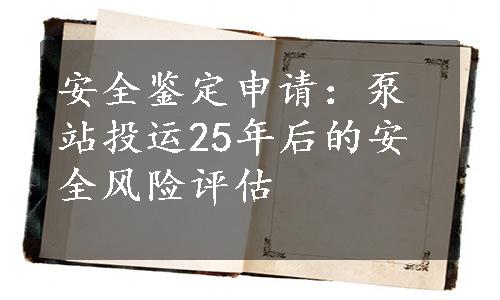 安全鉴定申请：泵
站投运25年后的安
全风险评估